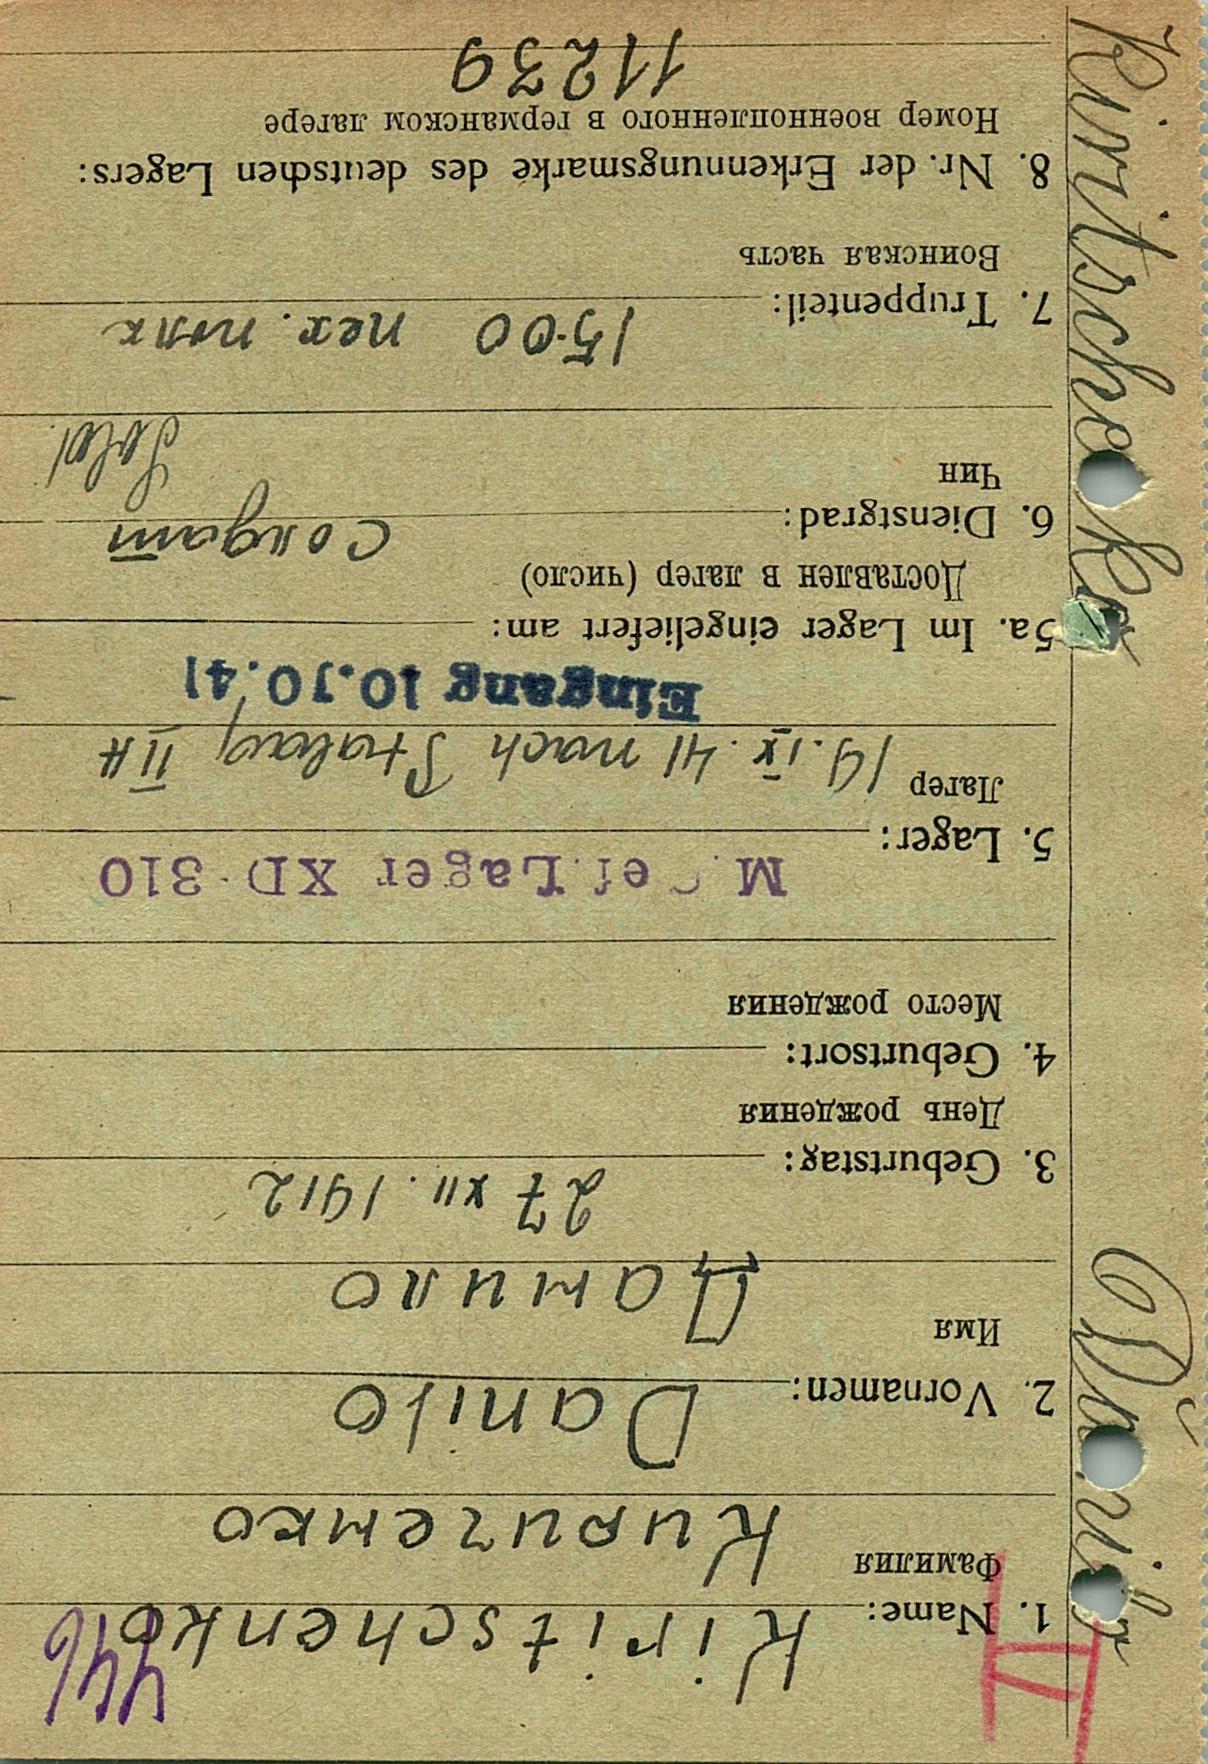 446
1. Name: Kiritschenko
Фамилия Кириченко
2. Vornamen: Danilo
Имя Данило
3. Geburtstag: 27 XII. 1912
День рождения
4. Geburtsort:
Место рождения
M ef. Lager XD 310
5. Lager:
Лагер 19. IX. 41 nach Stalag II H
Eingang 10.10.41
5a. Im Lager eingeliefert am:
Доставлен в лагер (число)
6. Dienstgrad: солдат
Чин Sold.
7. Truppenteil: 1500 пех. полк
Воинская часть
8. Nr. der Erkennungsmarke des deutschen Lagers:
Номер военнопленного в германском лагере
11239
Kiritschenko
Danilo
H